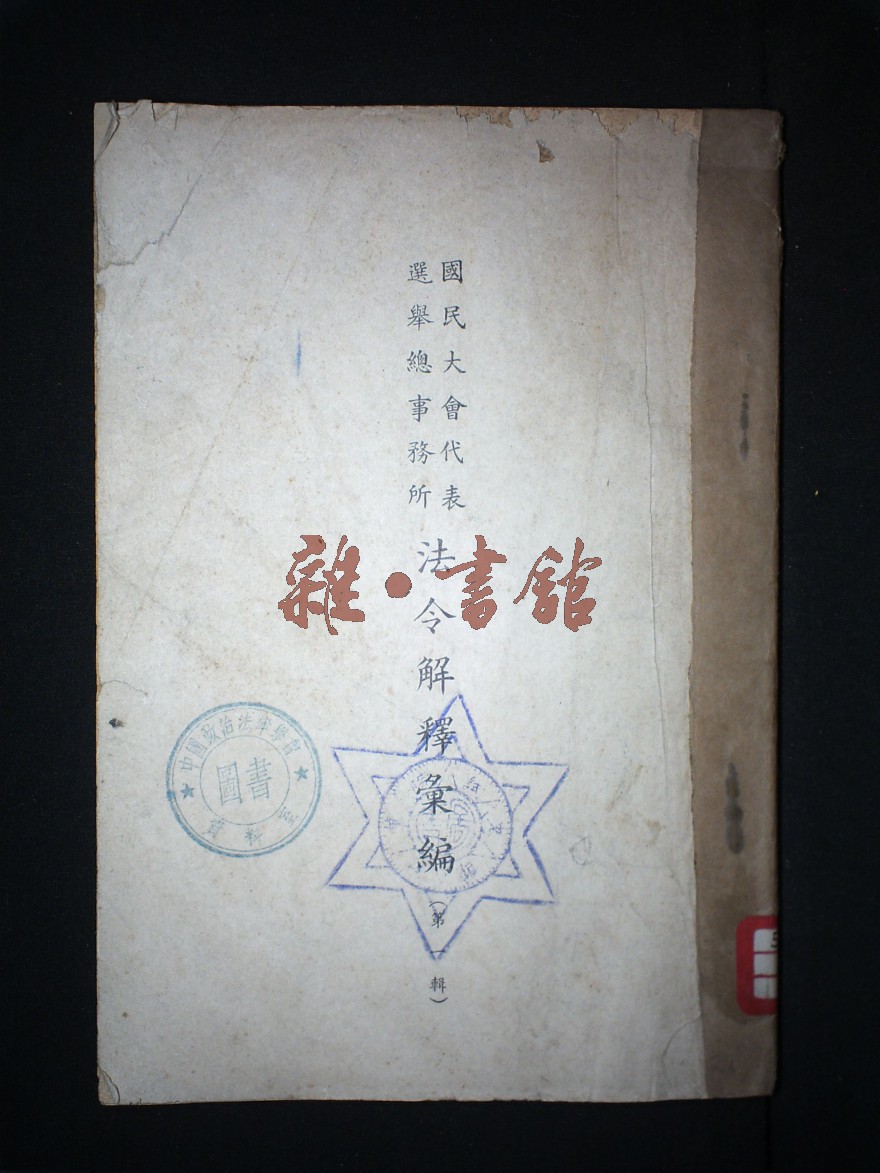 國民大會代表
選舉總事務所
法令解釋彙編
（第一輯）
雜·書館
中國政治法律學會
圖書
資料室